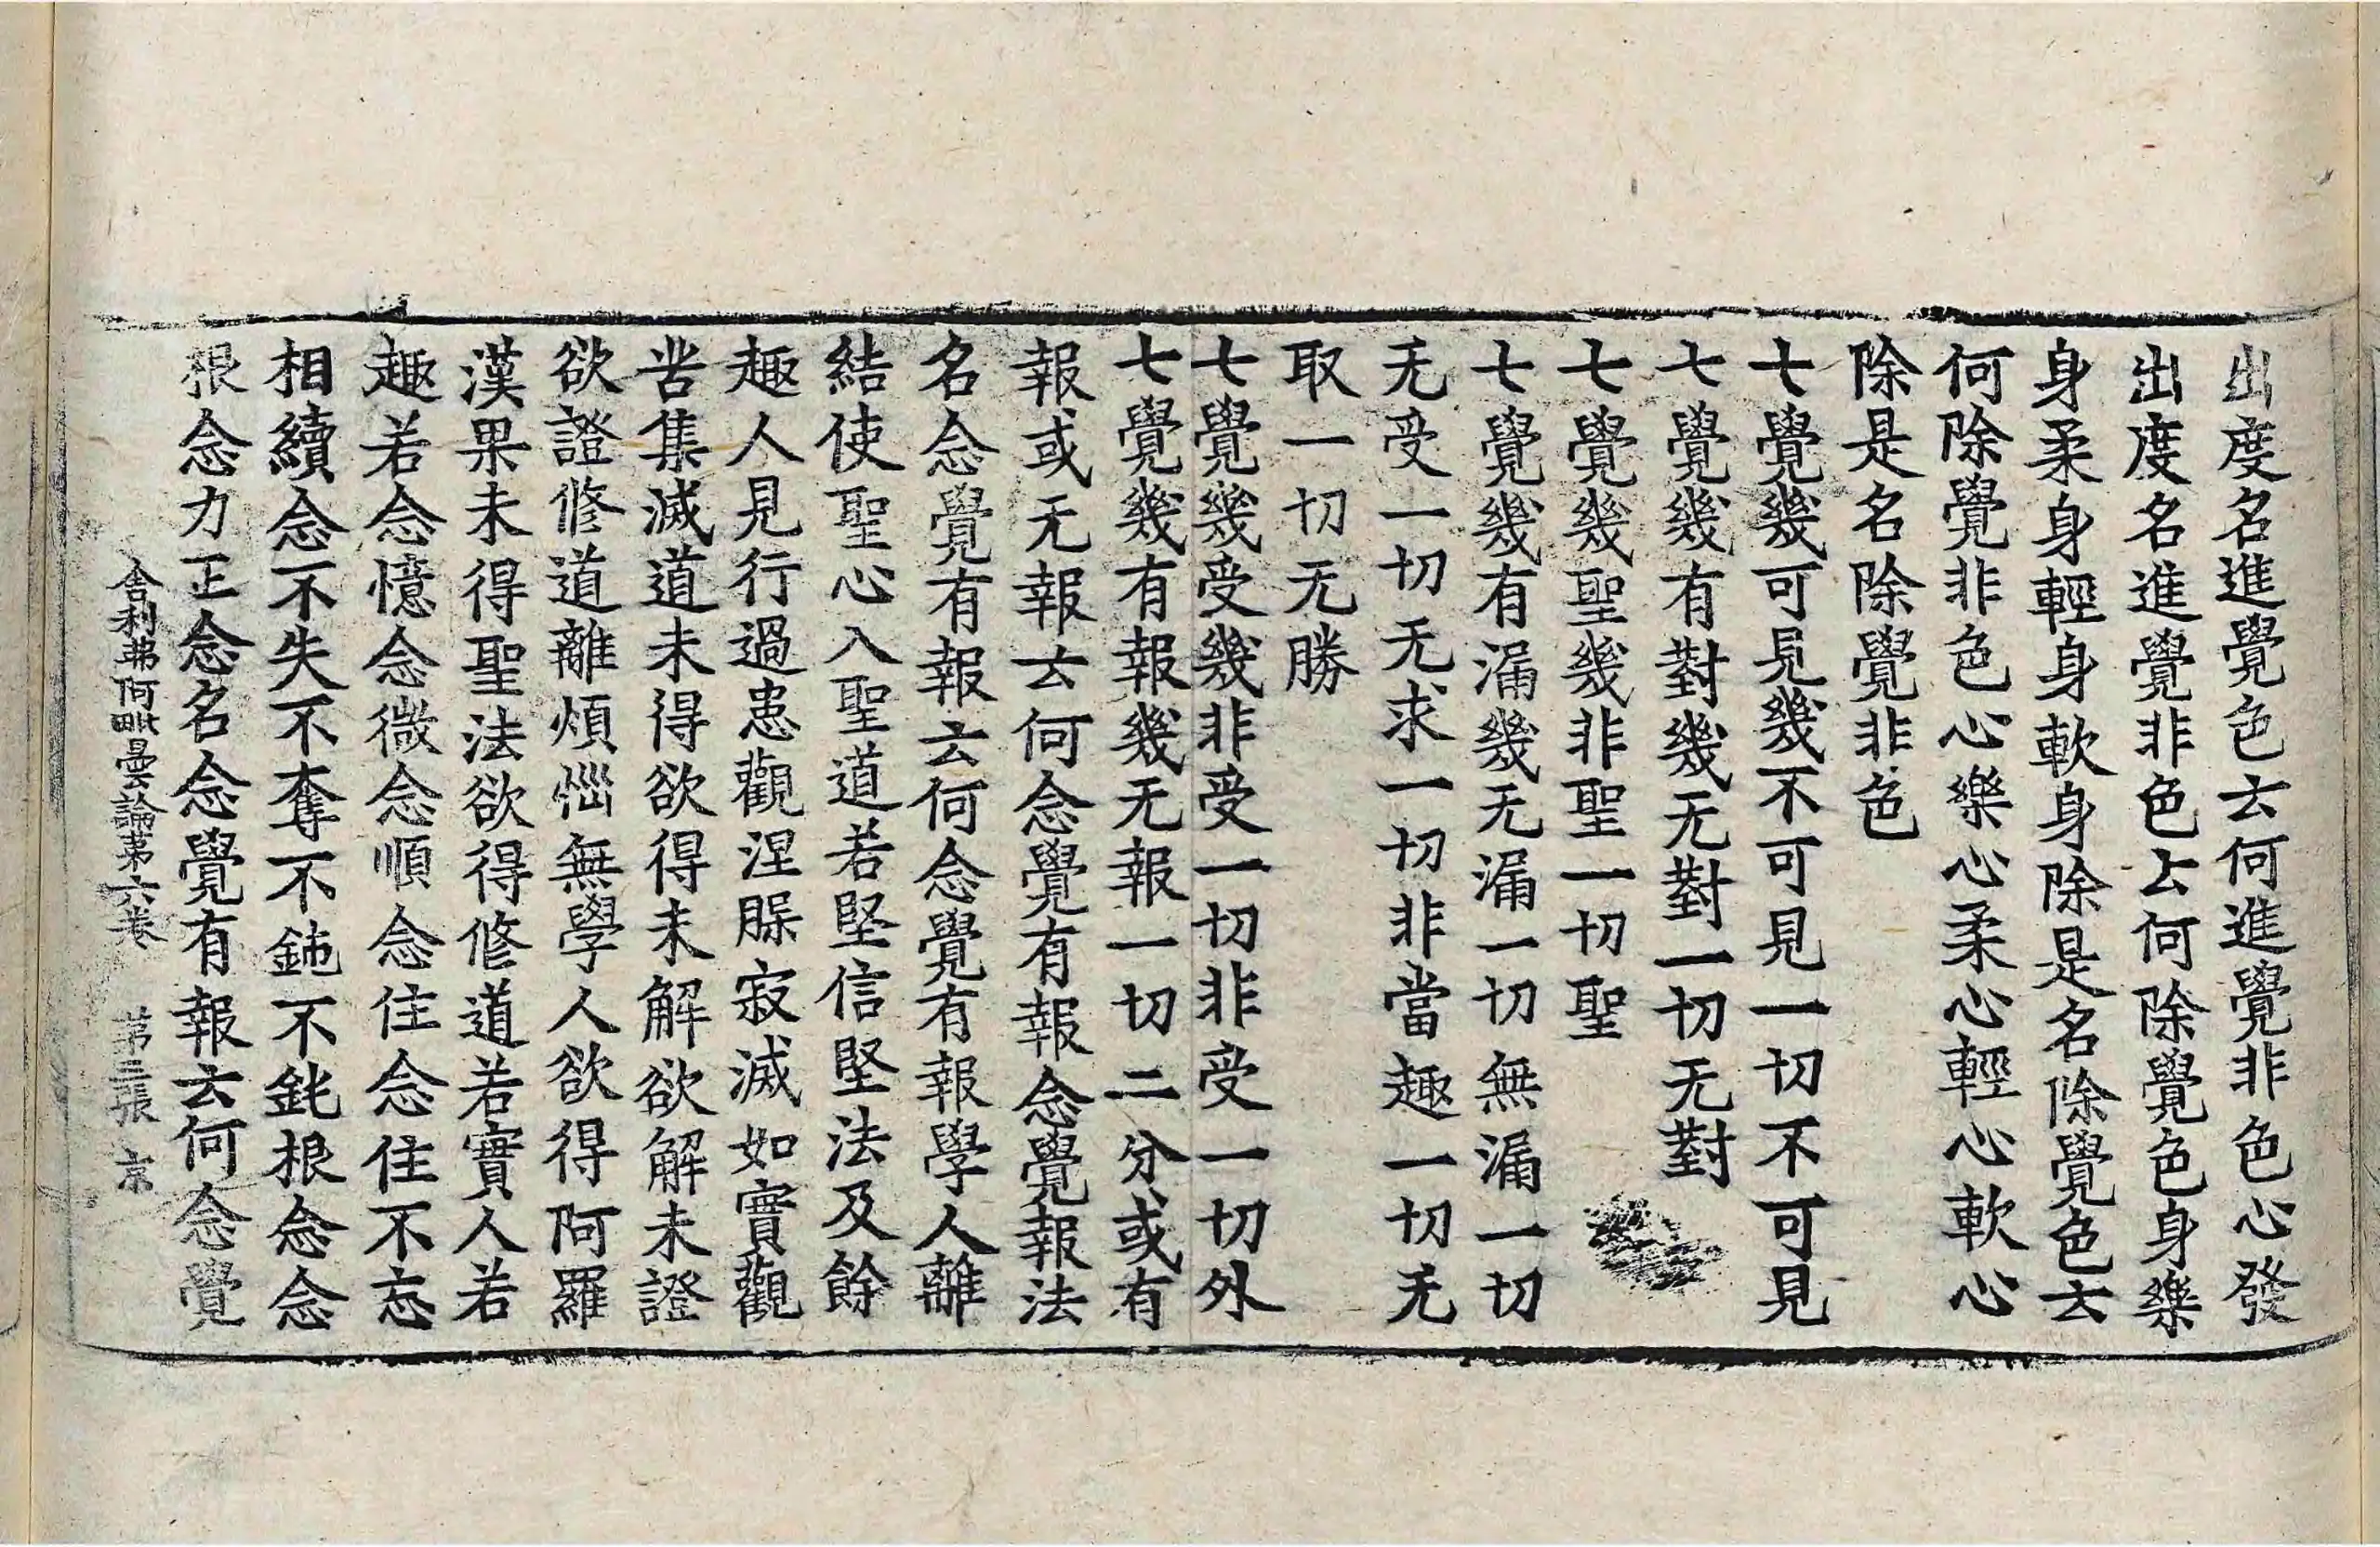 出度名進覺色云何進覺非色心發
出度名進覺非色云何除覺色身樂
身柔身輕身軟身除是名除覺色云
何除覺非色心樂心柔心輕心軟心
除是名除覺非色
七覺幾可見幾不可見一切不可見
七覺幾有對幾无對一切无對
七覺幾聖幾非聖一切聖
七覺幾有漏幾无漏一切無漏一切
无受一切无求一切非當趣一切无
取一切无勝
七覺幾受幾非受一切非受一切外
七覺幾有報幾无報一切二分或有
報或无報云何念覺有報念覺報法
名念覺有報云何念覺有報學人離
結使聖心入聖道若堅信堅法及餘
趣人見行過患觀涅脲寂滅如實觀
苦集滅道未得欲得未解欲解未證
欲證修道離煩惱無學人欲得阿羅
漢果未得聖法欲得修道若實人若
趣若念憶念微念順念住念住不忘
相續念不失不奪不鈍不鈍根念念
根念力正念名念覺有報云何念覺
舍利弗阿毗曇論第六卷 第三張 京